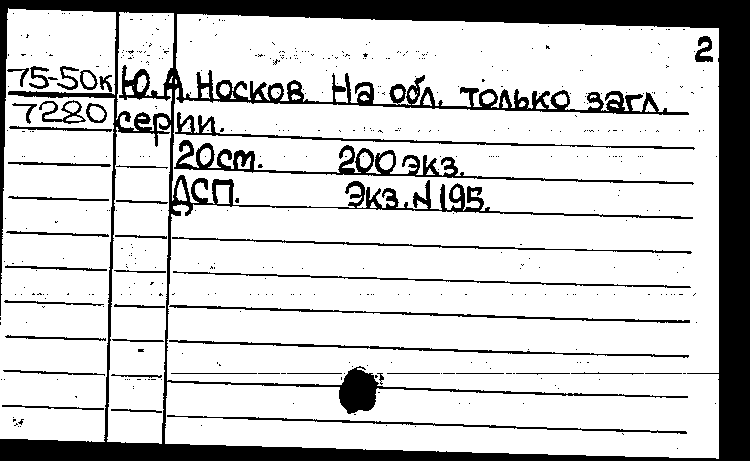 2
75-50к Ю.А.Носков. На обл. только загл.
7280 серии.
20см. 200 экз.
ДСП. Экз.N195.